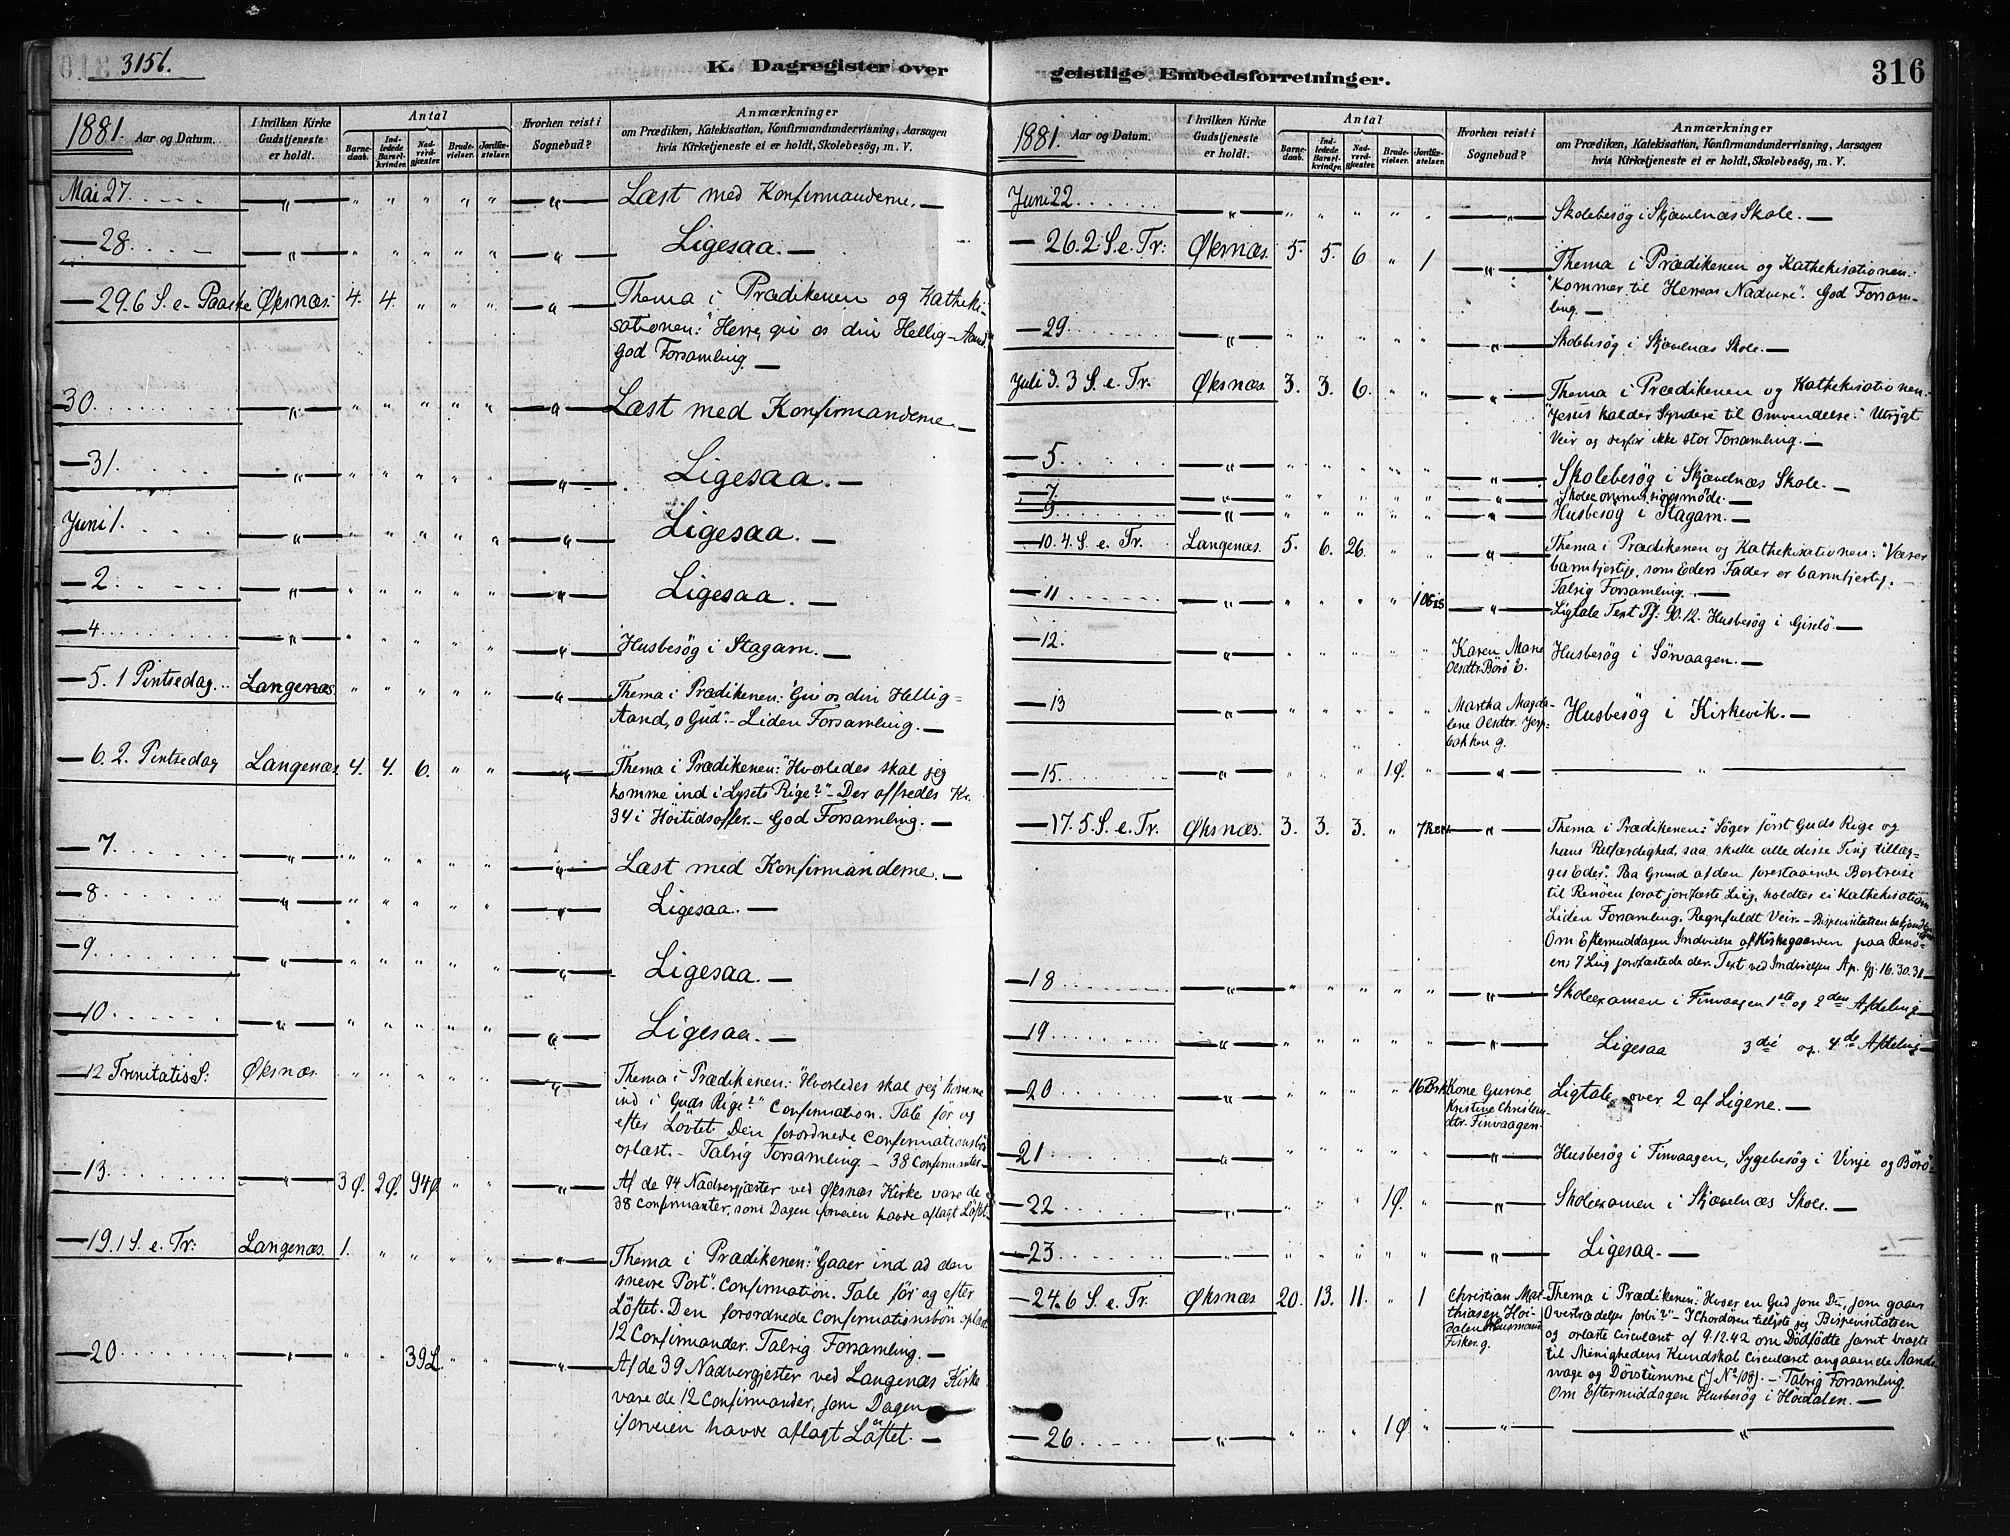 315b.
K. Dagregister over
1881. Aar og Datum.
I hvilken Kirke Gudstjeneste er holdt.
Antal
Barnedaab. Indledede Barselkvinder. Nadverdgjæster. Brudevielser. Jordfæstelser.
Hvorhen reist i Sognebud?
Anmærkninger
om Prædiken, Katekisation, Konfirmandundervisning, Aarsagen
hvis Kirketjeneste ei er holdt, Skolebesøg, m. V.
Mai 27. „ „ „ „ „ „ „ Læst med Konfirmanderne.
28. „ „ „ „ „ „ „ Ligesaa.
29. 6 S. e. Paaske Øksnæs. 4. 4. „ „ „ „ Thema i Prædikenen og Katheki-
sationen: "Herre, giv os din Hellig-Aand."
God Forsamling.
30. „ „ „ „ „ „ „ Læst med Konfirmanderne.
31. „ „ „ „ „ „ „ Ligesaa.
Juni 1. „ „ „ „ „ „ „ Ligesaa.
2. „ „ „ „ „ „ „ Ligesaa.
4. „ „ „ „ „ „ „ Husbesøg i Stagam.
5. 1 Pintsedag. Langenæs. „ „ „ „ „ „ Thema i Prædikenen: "Giv os din Hellig-
Aand, o Gud". - Liden Forsamling.
6. 2. Pintsedag Langenæs. 4. 4. 6. „ „ „ Thema i Prædikenen: "Hvorledes skal jeg
komme ind i Lysets Rige?" - Der offredes Kr.
34 i Høitidsoffer. - God Forsamling.
7. „ „ „ „ „ „ „ Læst med Konfirmanderne.
8. „ „ „ „ „ „ „ Ligesaa.
9. „ „ „ „ „ „ „ Ligesaa.
10. „ „ „ „ „ „ „ Ligesaa.
12 Trinitatis S: Øksnæs. „ „ „ „ „ „ Thema i Prædikenen: "Hvorledes skal jeg komme
ind i Guds Rige?" Confirmation. Tale før og
efter Løvtet. Den forordnede Confirmationsbøn
oplæst. - Talrig Forsamling - 38 Confirmanter.
13. „ 3Ø. 2Ø. 94Ø. „ „ „ Af de 94 Nadvergjæster ved Øksnæs Kirke vare de
38 Confirmanter, som Dagen forveien havde aflagt Løftet.
19. 1 S. e. Tr: Langenæs. 1. „ „ „ „ „ Thema i Prædikenen: "Gaaer ind ad den
snevre Port". Confirmation. Tale før og efter
Løftet. Den forordnede Confirmationsbøn oplæst.
12 Confirmander. Talrig Forsamling.
20 „ „ „ 39L. „ „ „ Af de 39 Nadvergjester ved Langenæs Kirke
vare de 12 Confirmander, som Dagen
iforveien havde aflagt Løftet.
geistlige Embedsforretninger.
316
1881. Aar og Datum.
I hvilken Kirke Gudstjeneste er holdt.
Antal
Barnedaab. Indledede Barselkvinder. Nadverdgjæster. Brudevielser. Jordfæstelser.
Hvorhen reist i Sognebud?
Anmærkninger
om Prædiken, Katekisation, Konfirmandundervisning, Aarsagen
hvis Kirketjeneste ei er holdt, Skolebesøg, m. V.
Juni 22. „ „ „ „ „ „ „ Skolebesøg i Skjævelnæs Skole.
26. 2. S. e. Tr: Øksnæs. 5. 5. 6 „ 1 „ Thema i Prædikenen og Kathekisationen:
"Kommer til Herrens Nadvere". God Forsam-
ling.
29 „ „ „ „ „ „ „ Skolebesøg i Skjævelnæs Skole.
Juli 3. 3 S. e. Tr. Øksnæs. 3. 3. 6. „ „ „ Thema i Prædikenen og Kathekisationen:
"Jesus kalder Syndere til Omvendelse." Utrygt
Veir og derfor ikke stor Forsamling.
5 „ „ „ „ „ „ „ Skolebesøg i Skjævelnæs Skole.
7. „ „ „ „ „ „ „ Skolecommissionsmøde.
9 „ „ „ „ „ „ „ Husbesøg i Stagam.
10. 4. S. e. Tr. Langenæs. 5. 6. 26. „ „ „ Thema i Prædikenen og Kathekisationen: "Værer
barmhjertige, som Eders Fader er barmhjertig.
Talrig Forsamling.
11 „ „ „ „ „ 1 „ Ligtale Text Ps. 90. 12. Husbesøg i Gislø.
12. „ „ „ „ „ „ Karen Marie Olsdtr Børø E. Husbesøg i Sørvaagen.
13 „ „ „ „ „ „ Martha Magdalene Olsdtr. bakken g. Husbesøg i Kirkevik.
15. „ „ „ „ 1Ø. „ „ „
17. 5. S. e. Tr. Øksnæs. 3. 3. 3. „ 7 Ren. „ Thema i Prædikenen: "Søger først Guds Rige og
hans Retfærdighed, saa skulle alle disse Ting tillæg-
ges Eder". Paa Grund af den forestaaende Bortreise
til Renøen forat jordfæste Liig, holdtes ei Kathekisation
Liden Forsamling, Regnfuldt Veir. - Bispevisitatsen bekjendtgjort
Om Eftermiddagen Indvielse af Kirkegaarden paa Renø-
en; 7 Liig jordfæstede der. Text ved Indvielsen Ap. Gj. 16. 30. 31
18 „ „ „ „ „ „ „ Skoleexamen i Finvaagen 1ste og 2den Afdeling
19. „ „ „ „ „ „ „ Ligesaa 3die og 4de Afdeling
20 „ „ „ „ „ 16 Kone Gurine Kristine Christensdtr. Finvaagen. Ligtale over 2 af Ligene.
21 „ „ „ „ „ „ „ Husbesøg i Finvaagen, Sygebesøg i Vinje og Børø
22 „ „ „ „ 1Ø. „ „ Skoleexamen i Skjævelnæs Skole.
23 „ „ „ „ „ „ „ Ligesaa.
24. 6 S. e. Tr. Øksnæs. 20. 13. 11. „ 1 Christian Mathiasen Høidalen Husmand Fisker. g. Thema i Prædikenen: "Hvo er en Gud som Du, som gaaer
Overtrædelse forbi?" - I Chordøren tillyste jeg Bispevisitatsen
og oplæste Circulæret af 9.12.42 om Dødfødte samt bragte
til Menighedens Kundskab Circulæret angaaende Aands-
svage og Døvstumme (J No 108). - Talrig Forsamling.
Om Eftermiddagen Husbesøg i Høidalen.
26 „ „ „ „ 1Ø „ „ „